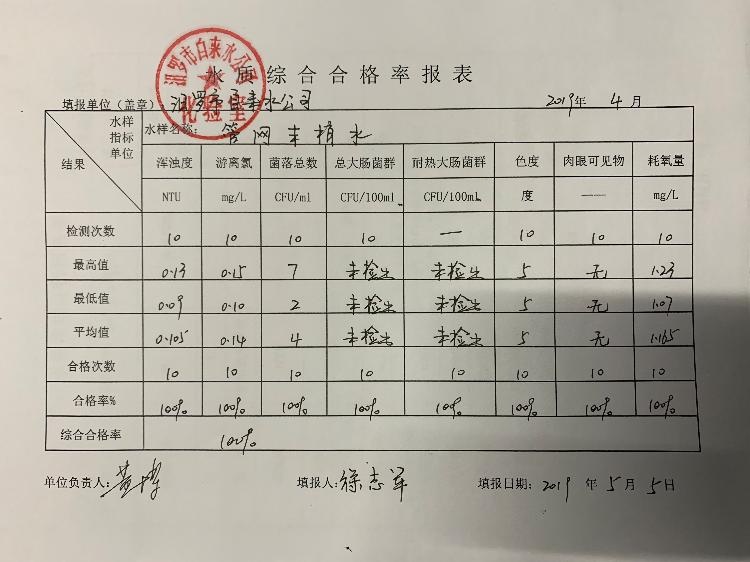 汨罗市自来水公司
化验室
水质综合合格率报表
填报单位（盖章）：汨罗市自来水公司 2019年 4月
水样 指标 单位 结果 水样名称：管网末梢水
浑浊度 游离氯 菌落总数 总大肠菌群 耐热大肠菌群 色度 肉眼可见物 耗氧量
NTU mg/L CFU/ml CFU/100ml CFU/100mL 度 —— mg/L
检测次数 10 10 10 10 — 10 10 10
最高值 0.13 0.15 7 未检出 未检出 5 无 1.23
最低值 0.09 0.10 2 未检出 未检出 5 无 1.07
平均值 0.105 0.14 4 未检出 未检出 5 无 1.165
合格次数 10 10 10 10 10 10 10 10
合格率% 100% 100% 100% 100% 100% 100% 100% 100%
综合合格率 100%
单位负责人：黄博 填报人：徐志军 填报日期：2019 年 5 月 5 日